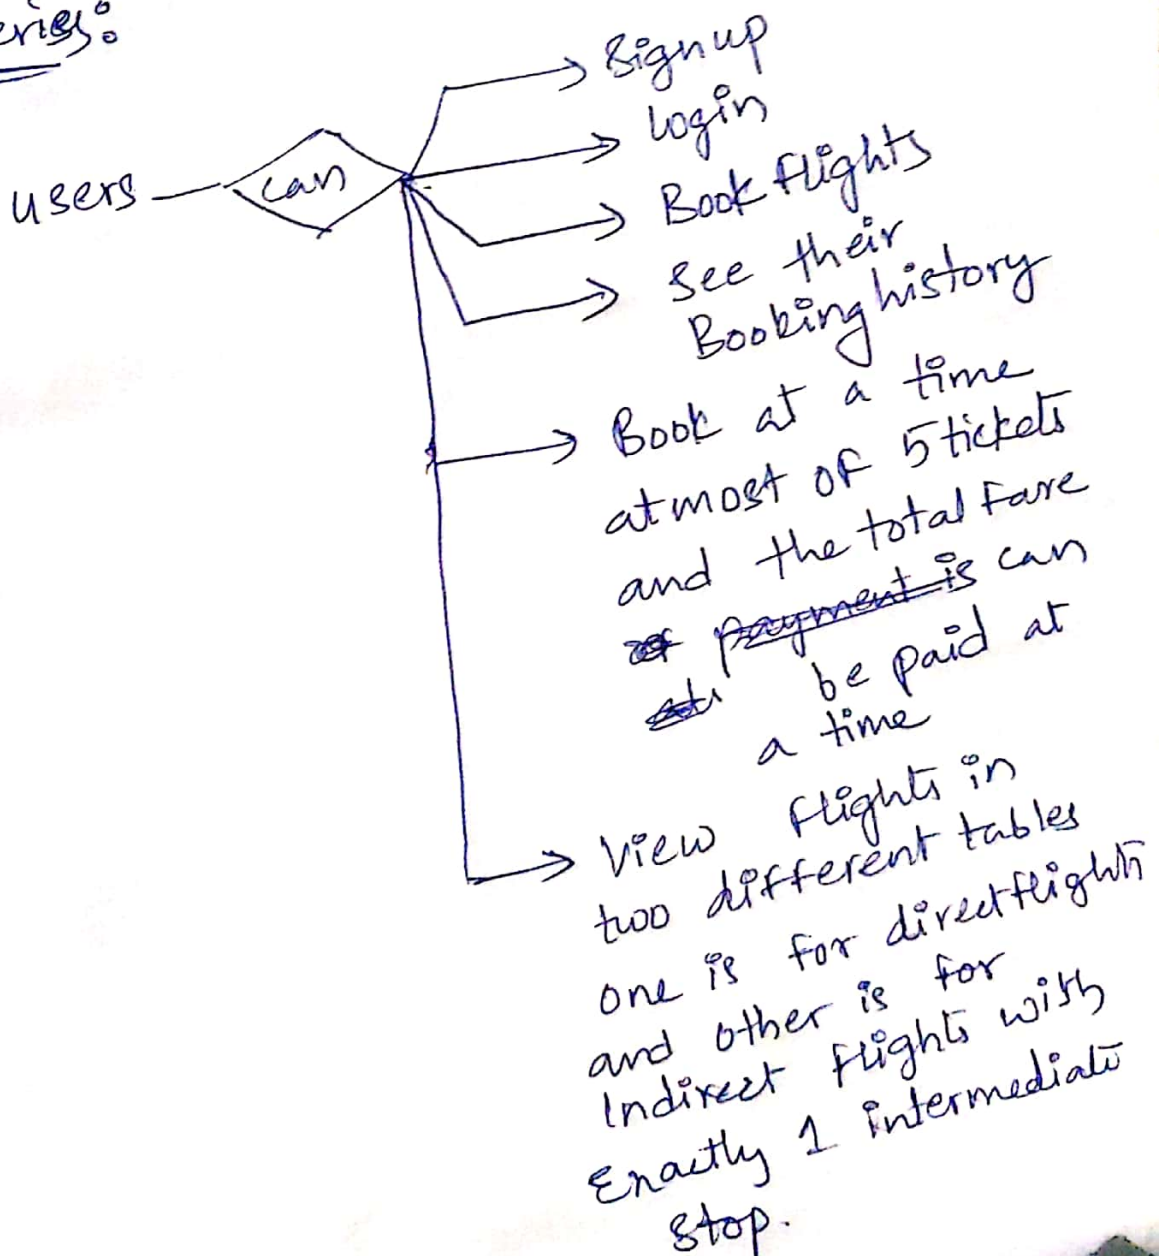 eries:
users
can
Signup
login
Book flights
See their
Booking history
Book at a time
atmost of 5 tickets
and the total fare
payment is can
be paid at
a time
View flights in
two different tables
one is for direct flights
and other is for
Indirect flights with
Exactly 1 intermediate
stop.